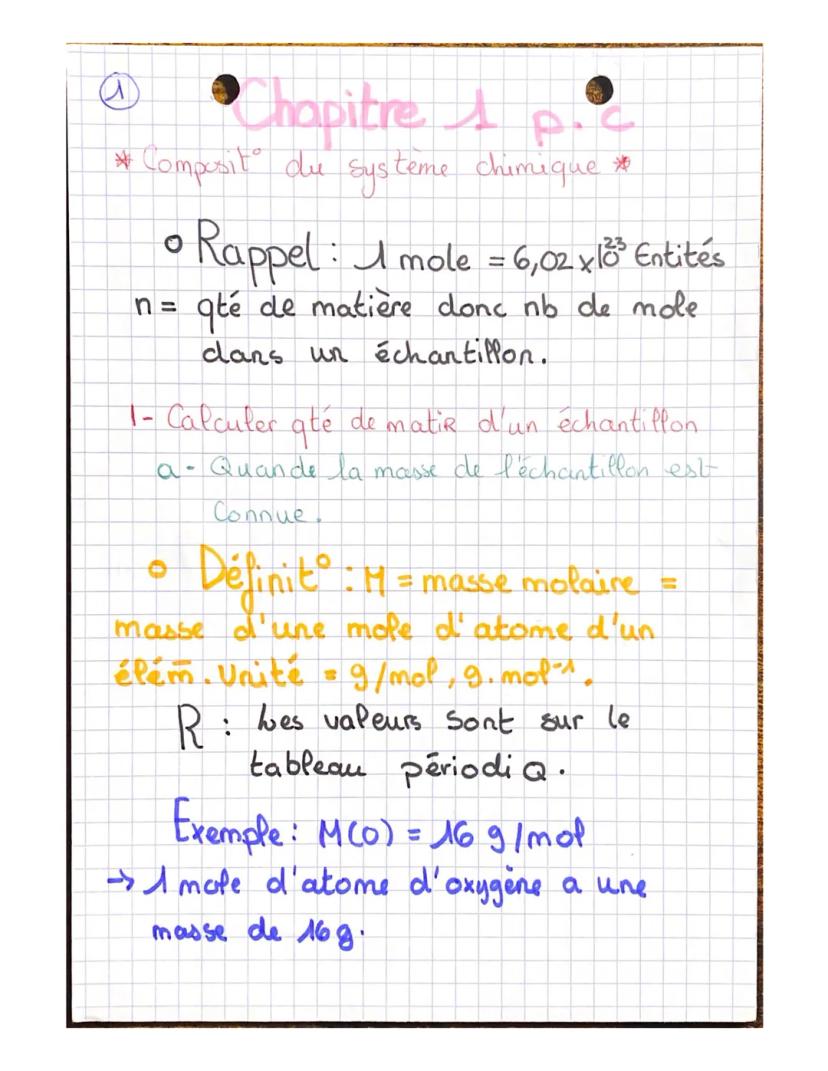 1
Chapitre 1 p.c
* Composit° du système chimique *
o Rappel : 1 mole = 6,02 x10²³ Entités
n = qté de matière donc nb de mole
dans un échantillon.
1- Calculer qté de matiR d'un échantillon
a - Quande la masse de l'échantillon est
Connue.
o Définit° : M = masse molaire =
masse d'une mole d'atome d'un
élém̄. Unité = g/mol, g.mol⁻¹.
R : Les valeurs sont sur le
tableau périodiQ.
Exemple : M(O) = 16 g/mol
→ 1 mole d'atome d'oxygène a une
masse de 16g.